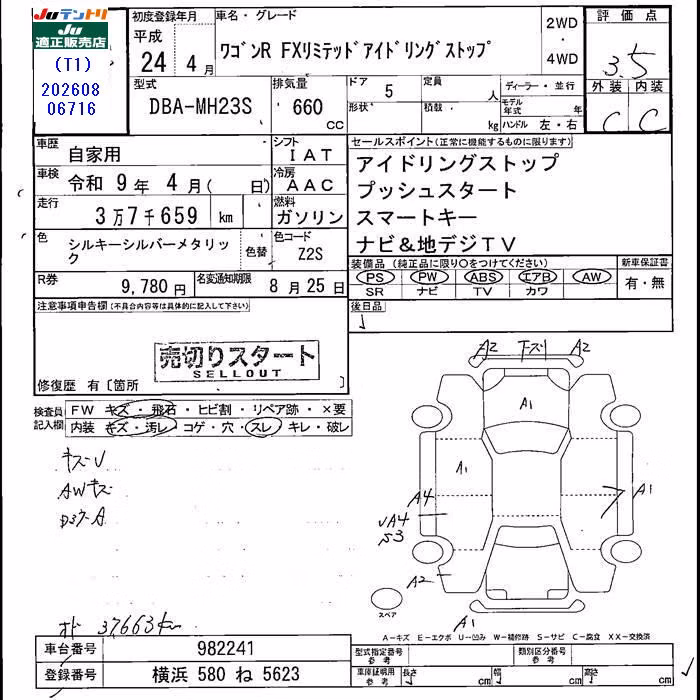 JUテントリ
JU
適正販売店
(T1)
202608
06716
初度登録年月
平成
24 4月
車名・グレード
ワゴンR FXリミテッドアイドリングストップ
2WD
・
4WD
評価点
3.5
外装 内装
C C
型式
DBA-MH23S
排気量
660
CC
ドア
5
形状
定員
人
積載
kg
ディーラー・並行
モデル年式 年
ハンドル 左・右
車歴
自家用
シフト
IAT
車検
令和 9年 4月( 日)
冷房
AAC
走行
3万7千659 km
燃料
ガソリン
色
シルキーシルバーメタリック
色替
色コード
Z2S
R券
9,780円
名変通知期限
8月25日
セールスポイント(正常に機能するものに限ります)
アイドリングストップ
プッシュスタート
スマートキー
ナビ&地デジTV
装備品(純正品に限り〇をつけてください)
PS PW ABS エアB AW
SR ナビ TV カワ
新車保証書
有・無
後日品
注意事項申告欄(不具合内容等は具体的に記入して下さい)
売切りスタート
SELLOUT
修復歴 有〔箇所 〕
検査員記入欄
FW キズ・飛石・ヒビ割・リペア跡・×要
内装 キズ・汚レ・コゲ・穴・スレ・キレ・破レ
キズU
AWキズ
オド 37663km
A2 下ズリ A2
A1
A1
A4
A1
A4
S3
A2
A1
スペア
A-キズ E-エクボ U-凹み W-補修跡 S-サビ C-腐食 XX-交換済
車台番号 982241
登録番号 横浜 580 ね 5623
型式指定番号
参考
類別区分番号
参考
車庫証明用
参考
長さ cm 幅 cm 高さ cm